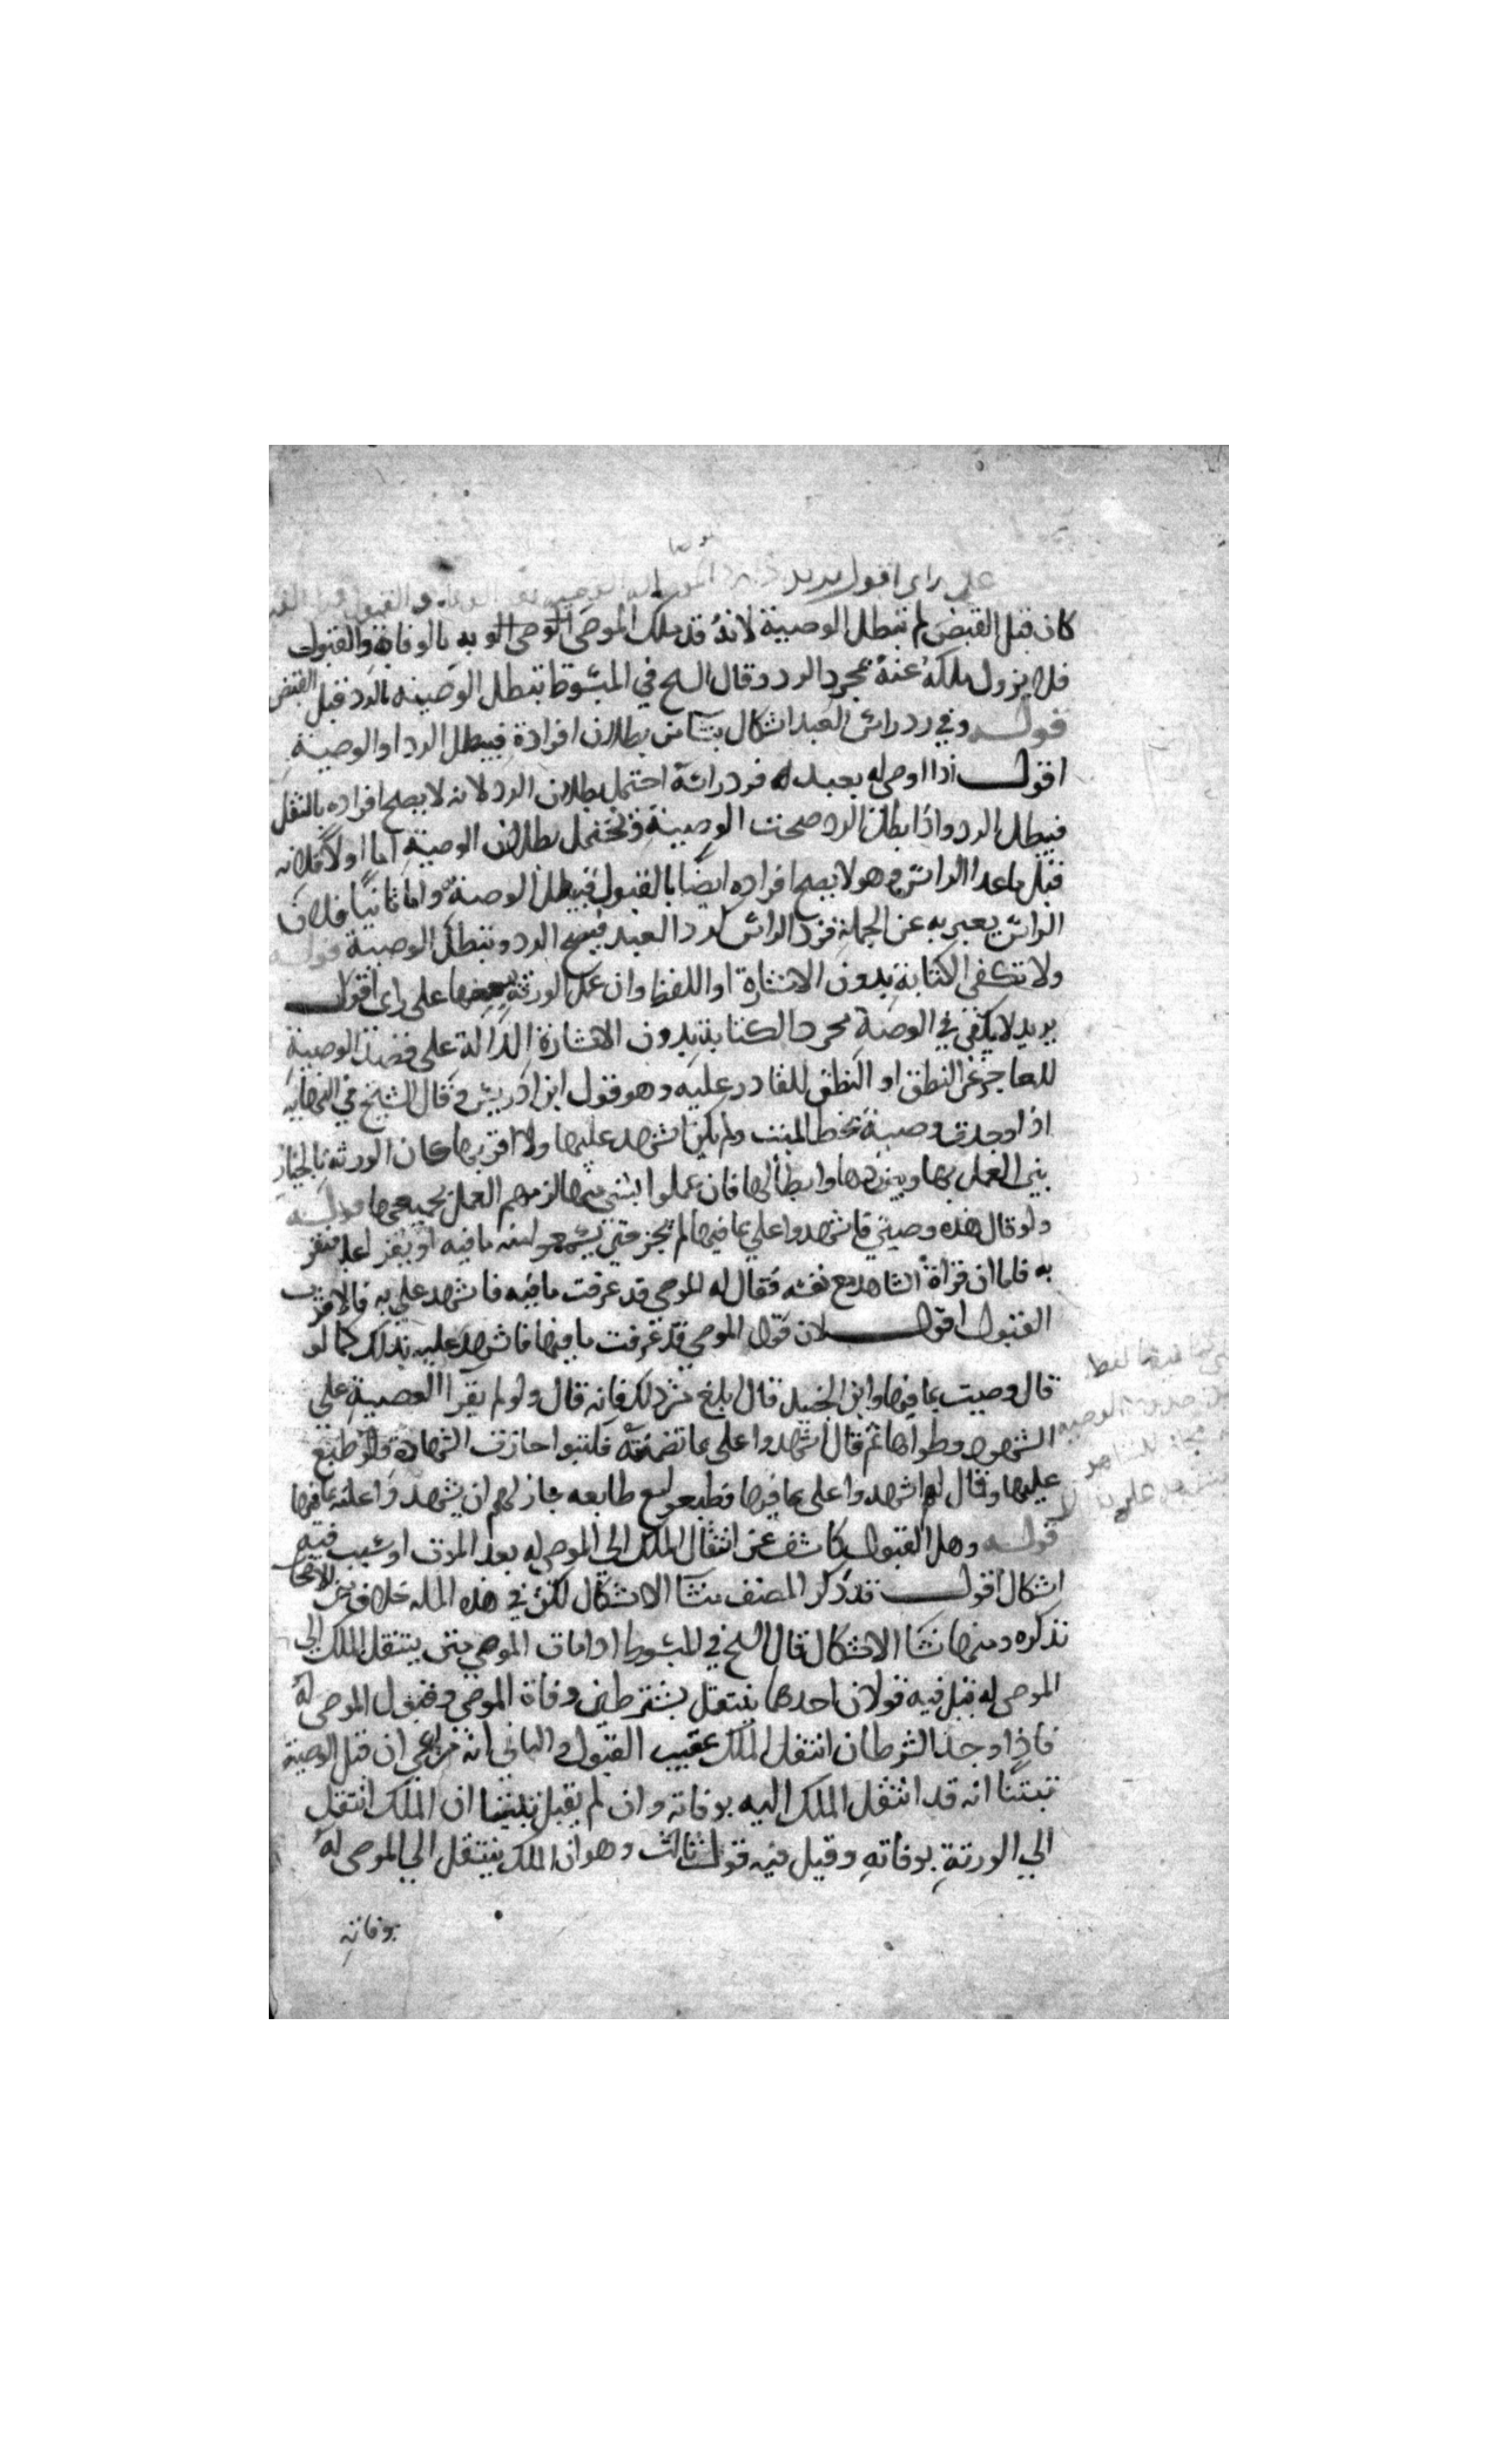 على راى اقول يريد اذا رد الموصى له الوصية بعد الوفاة و القبول قبل القبض
كان قبل القبض لم تبطل الوصية لانه قد ملك الموصى الوصى الو به بالوفاة والقبول
فلا يزول ملكه عنه بمجرد الرد وقال الشيخ في المبسوط تبطل الوصية بالرد قبل القبض
قوله وفي رد رأس العبد اشكال ينشا من بطلان افراده فيبطل الرد او الوصية
اقول اذا اوصى له بعبد له فرد راسه احتمل بطلان الرد لانه لا يصلح افراده بالنقل
فيبطل الرد واذا بطل الرد صحت الوصية ويحتمل بطلان الوصية اما اولا فلانه
قبل ما عدا الراس وهو لا يصح افراده ايضا بالقبول فيبطل الوصية واما ثانيا فلان
الراس يعبر به عن الجملة فرد الراس رد العبد فيصح الرد وتبطل الوصية قوله
ولا تكفى الكتابة بدون الاشارة او اللفظ وان عمل الورثة ببعضها على راى اقول
يريد لا يكفى في الوصية مجرد الكتابة بدون الاشارة الدالة على قصد الوصية
للعاجز عن النطق او النطق للقادر عليه وهو قول ابن ادريس وقال الشيخ في النهاية
اذا وجدت وصية بخط الميت ولم يكن اشهد عليها ولا اقر بها كان الورثة بالخيار
بين العمل بها وبين ردها وابطالها فان عملوا بشى منها لزمهم العمل بجميعها قوله
ولو قال هذه وصيتي فاشهدوا على بما فيها لم يجز حتى يسمعوا منه ما فيه او يقرا عليه فيقر
به فاما ان قراة الشاهد مع نفسه فقال له الموصى قد عرفت ما فيه فاشهد على به فالاقرب
القبول اقول لان قول الموصى قد عرفت ما فيها فاشهد عليه بذلك كما لو
قال وصيت بما فيها وابن الجنيد قال ابلغ من ذلك فانه قال ولو لم يقرا الوصية على
الشهود وطواها ثم قال اشهدوا على بما تضمنته فكتبوا جازت الشهادة ولو طبع
عليها وقال لهم اشهدوا على بما فيها فطبعوا مع طابعه جاز لهم ان يشهدوا عليه بما فيها
قوله وهل القبول كاشف عن انتقال الملك الى الموصى له بعد الموت او سبب فيه
اشكال اقول قد ذكر المصنف منشا الاشكال لكن في هذه المسلة خلاف بين الاصحاب
نذكره ومنها نشا الاشكال قال الشيخ في المبسوط اذا مات الموصي متى ينتقل الملك الى
الموصى له قيل فيه قولان احدهما ينتقل بشرطين وفاة الموصي وقبول الموصى له
فاذا وجد الشرطان انتقل الملك عقيب القبول و الثاني انه مراعى ان قبل الوصية
تبينا انه قد انتقل الملك اليه بوفاته وان لم يقبل تبينا ان الملك انتقل
الي الورثة بوفاته وقيل فيه قول ثالث وهو ان الملك ينتقل الي الموصى له
بوفاته